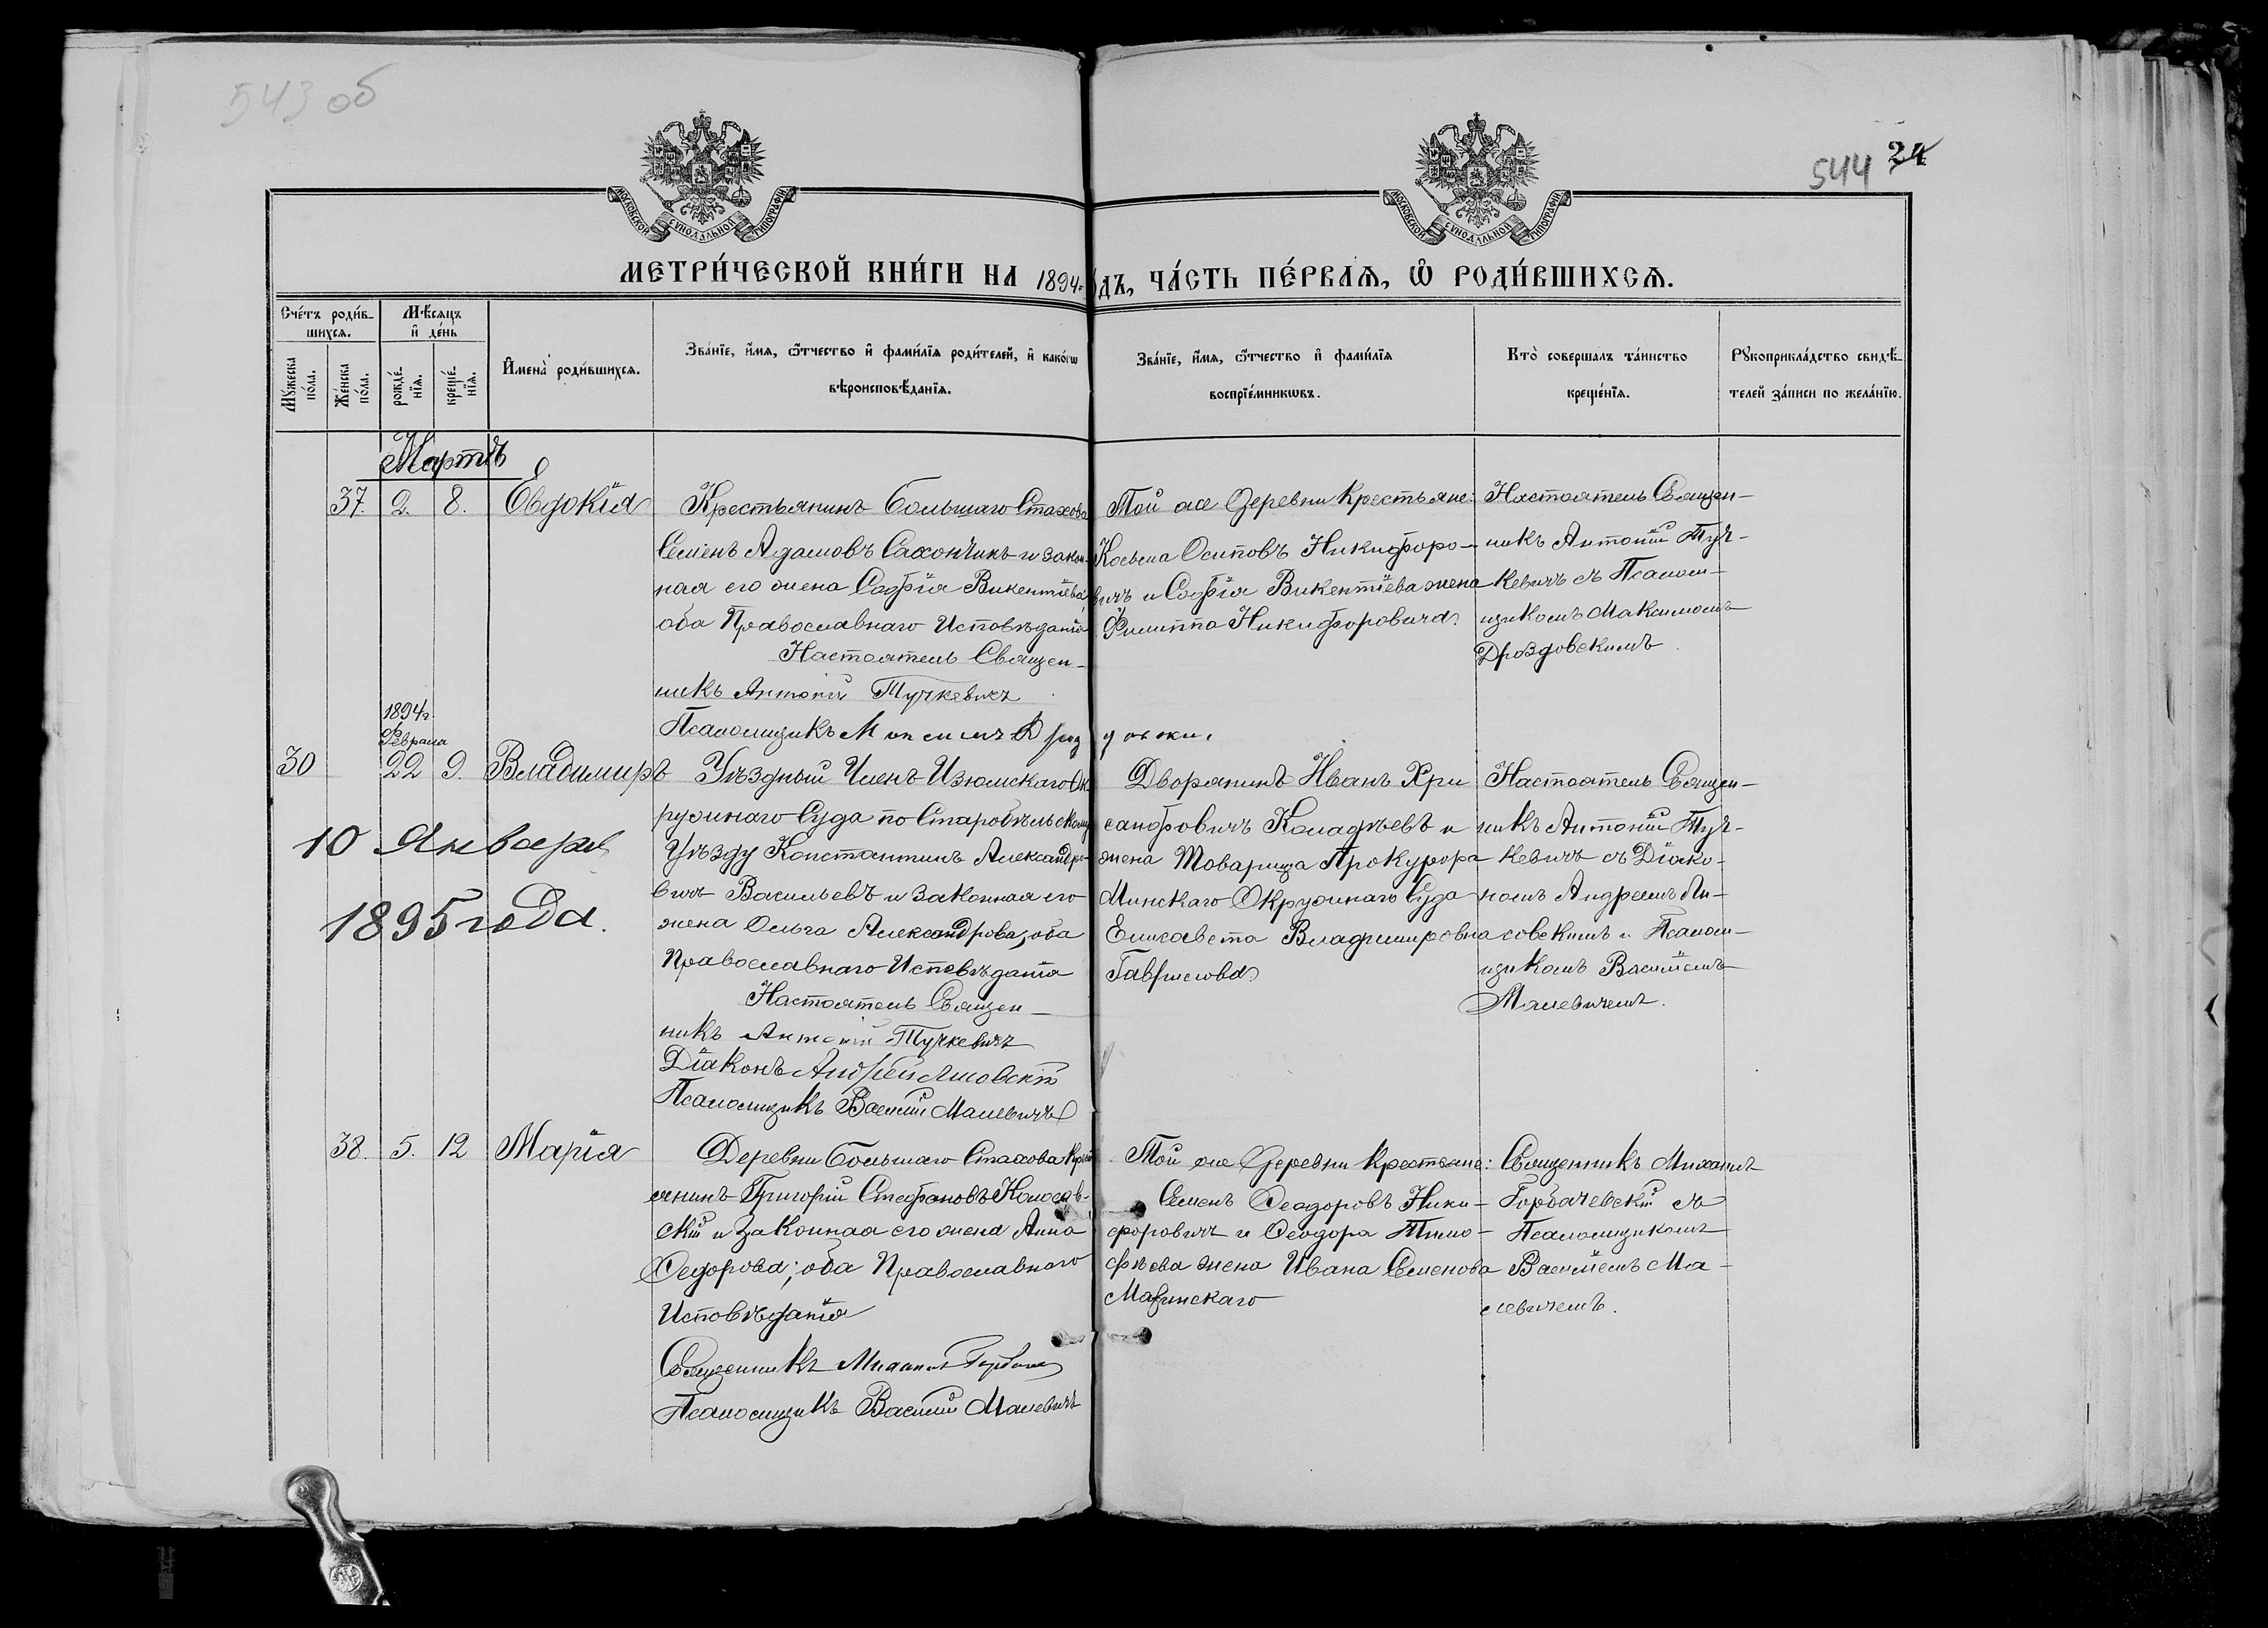 543 об
544 24
МОСКОВСКОЙ СѴНОДАЛЬНОЙ ТИПОГРАФІИ
МОСКОВСКОЙ СѴНОДАЛЬНОЙ ТИПОГРАФІИ
МЕТРИ́ЧЕСКОЙ КНИ́ГИ НА 1894 г. ДЪ, ЧА́СТЬ ПЕ́РВАЯ, Ѡ҆ РОДИ́ВШИХСЯ.
Сче́тъ роди́в-
шихся.
Мѣ́сяцъ
и҆ де́нь
Мꙋ́жеска
по́ла.
Же́нска
по́ла.
рожде́-
нїя.
креще́-
нїя.
И҆мена̀ роди́вшихся.
Зва́нїе, и҆́мя, ѻ҆́тчество и҆ фами́лїя роди́телей, и҆ како́гѡ
вѣроисповѣ́данїя.
Зва́нїе, и҆́мя, ѻ҆́тчество и҆ фами́лїя
воспрїе́мникѡвъ.
Кто̀ соверша́лъ та́инство
креще́нїя.
Рꙋкоприкла́дство свидѣ́-
телей за́писи по жела́нїю.
Мартъ
37. 2. 8. Евдокія
Крестьянинъ Большаго Стахова
Семенъ Адамовъ Сахончикъ и закон-
ная его жена Софія Викентіева,
оба Православнаго Исповѣданія
Настоятель Священ-
никъ Антоній Тучкевичъ
Псаломщикъ
Той же Деревни Крестьяне:
Косьма Осиповъ Никифоро-
вичъ и Софія Викентіева жена
Филиппа Никифоровича
Настоятель Священ-
никъ Антоній Туч-
кевичъ съ Псалом-
щикомъ Максимомъ
Дроздовскимъ
1894 г.
Февраля
30 22 9. Владимиръ
10 Января
1895 года.
Уѣздный Членъ Изюмскаго Ок-
ружнаго Суда по Старобѣльскому
Уѣзду Константинъ Александро-
вичъ Васильевъ и законная его
жена Ольга Александрова, оба
Православнаго Исповѣданія
Настоятель Священ-
никъ Антоній Тучкевичъ
Діаконъ Андрей Лисовскій
Псаломщикъ Василій Малевичъ
Дворянинъ Иванъ Хри
санфовичъ Коладѣевъ и
жена Товарища Прокурора
Минскаго Окружнаго Суда
Елисавета Владимировна
Гаврилова
Настоятель Священ-
никъ Антоній Туч-
кевичъ съ Діако-
номъ Андреемъ Ли-
совскимъ и Псалом-
щикомъ Василіемъ
Малевичемъ.
38. 5. 12 Марія
Деревни Большаго Стахова Крест
янинъ Григорій Стефановъ
и законная его жена Анна
Федорова; оба Православнаго
Исповѣданія
Священникъ Михаилъ
Псаломщикъ Василій Малевичъ
Той же Деревни Крестьяне:
Семенъ Ѳеодоровъ Ники-
форовичъ и Ѳеодора Тимо-
фѣева жена Ивана Семенова
Священникъ Михаилъ
Горбачевскій съ
Псаломщикомъ
Василіемъ Ма-
левичемъ.